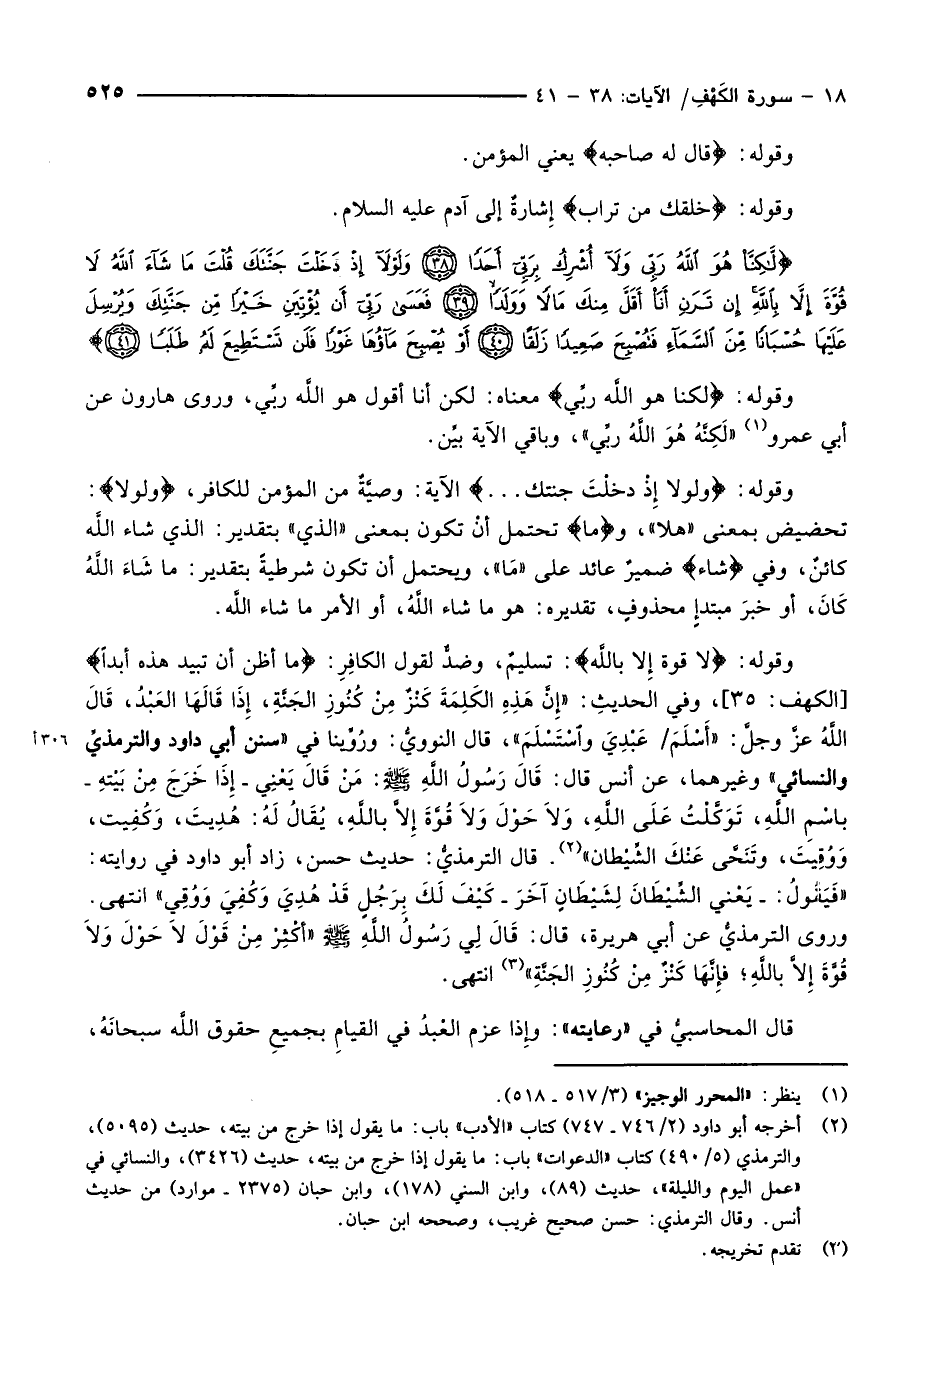 ١٨ - سورة الكَهْفِ/ الآيات: ٣٨ - ٤١ ٥٢٥
وقوله: ﴿قال له صاحبه﴾ يعني المؤمن.
وقوله: ﴿خلقك من تراب﴾ إِشارةٌ إلى آدم عليه السلام.
﴿لَّٰكِنَّا۠ هُوَ ٱللَّهُ رَبِّى وَلَآ أُشْرِكُ بِرَبِّىٓ أَحَدًا ﴿٣٨﴾ وَلَوْلَآ إِذْ دَخَلْتَ جَنَّتَكَ قُلْتَ مَا شَآءَ ٱللَّهُ لَا
قُوَّةَ إِلَّا بِٱللَّهِ ۚ إِن تَرَنِ أَنَا۠ أَقَلَّ مِنكَ مَالًا وَوَلَدًا ﴿٣٩﴾ فَعَسَىٰ رَبِّىٓ أَن يُؤْتِيَنِ خَيْرًا مِّن جَنَّتِكَ وَيُرْسِلَ
عَلَيْهَا حُسْبَانًا مِّنَ ٱلسَّمَآءِ فَتُصْبِحَ صَعِيدًا زَلَقًا ﴿٤٠﴾ أَوْ يُصْبِحَ مَآؤُهَا غَوْرًا فَلَن تَسْتَطِيعَ لَهُۥ طَلَبًا ﴿٤١﴾﴾
وقوله: ﴿لكنا هو اللَّه ربِّي﴾ معناه: لكن أنا أقول هو اللَّه ربِّي، وروى هارون عن
أبي عمرو(١) «لَكِنَّهُ هُوَ اللَّهُ ربِّي»، وباقي الآية بيِّن.
وقوله: ﴿ولولا إِذْ دخلْتَ جنتك...﴾ الآية: وصيَّةٌ من المؤمن للكافر، ﴿ولولا﴾:
تحضيض بمعنى «هلا»، و﴿ما﴾ تحتمل أنْ تكون بمعنى «الذي» بتقدير: الذي شاء اللَّه
كائنٌ، وفي ﴿شاء﴾ ضميرٌ عائد على «مَا»، ويحتمل أن تكون شرطيةً بتقدير: ما شَاءَ اللَّهُ
كَانَ، أو خبرَ مبتدإٍ محذوفٍ، تقديره: هو ما شاء اللَّهُ، أو الأمر ما شاء اللَّه.
وقوله: ﴿لا قوة إلا باللَّه﴾: تسليمٌ، وضدٌّ لقول الكافِرِ: ﴿ما أظن أن تبيد هذه أبداً﴾
[الكهف: ٣٥]، وفي الحديثِ: «إِنَّ هَذِهِ الكَلِمَةَ كَنْزٌ مِنْ كُنُوزِ الجَنَّةِ، إِذَا قَالَهَا العَبْدُ، قَالَ
اللَّهُ عزَّ وجلَّ: «أَسْلَمَ/ عَبْدِيَ وٱسْتَسْلَمَ»، قال النوويُّ: ورُوِّينا في «سنن أبي داود والترمذيِّ ٣٠٦ أ
والنسائي» وغيرهما، عن أنس قال: قَالَ رَسُولُ اللَّهِ ﷺ: مَنْ قَالَ يَعْنِي ـ إِذَا خَرَجَ مِنْ بَيْتِهِ ـ
باسْمِ اللَّهِ، تَوَكَّلْتُ عَلَى اللَّهِ، وَلاَ حَوْلَ وَلاَ قُوَّةَ إِلاَّ باللَّهِ، يُقَالُ لَهُ: هُدِيتَ، وَكُفِيت،
وَوُقِيتَ، وتَنَحَّى عَنْكَ الشَّيْطان»(٢). قال الترمذيُّ: حديث حسن، زاد أبو داود في روايته:
«فَيَقُولُ: ـ يَعْني الشَّيْطَانَ لِشَيْطَانٍ آخَرَ ـ كَيْفَ لَكَ بِرَجُلٍ قَدْ هُدِيَ وَكُفِيَ وَوُقِي» انتهى.
وروى الترمذيُّ عن أبي هريرة، قال: قَالَ لِي رَسُولُ اللَّهِ ﷺ «أَكْثِرْ مِنْ قَوْلَ لاَ حَوْلَ وَلاَ
قُوَّةَ إِلاَّ باللَّهِ؛ فإِنَّهَا كَنْزٌ مِنْ كُنُوزِ الجَنَّةِ»(٣) انتهى.
قال المحاسبيُّ في «رعايته»: وإِذا عزم العْبدُ في القيامِ بجميعِ حقوق اللَّه سبحانَهُ،
(١) ينظر: «المحرر الوجيز» (٥١٧/٣ ـ ٥١٨).
(٢) أخرجه أبو داود (٧٤٦/٢ ـ ٧٤٧) كتاب «الأدب» باب: ما يقول إذا خرج من بيته، حديث (٥٠٩٥)،
والترمذي (٤٩٠/٥) كتاب «الدعوات» باب: ما يقول إذا خرج من بيته، حديث (٣٤٢٦)، والنسائي في
«عمل اليوم والليلة»، حديث (٨٩)، وابن السني (١٧٨)، وابن حبان (٢٣٧٥ ـ موارد) من حديث
أنس. وقال الترمذي: حسن صحيح غريب، وصححه ابن حبان.
(٣) تقدم تخريجه.